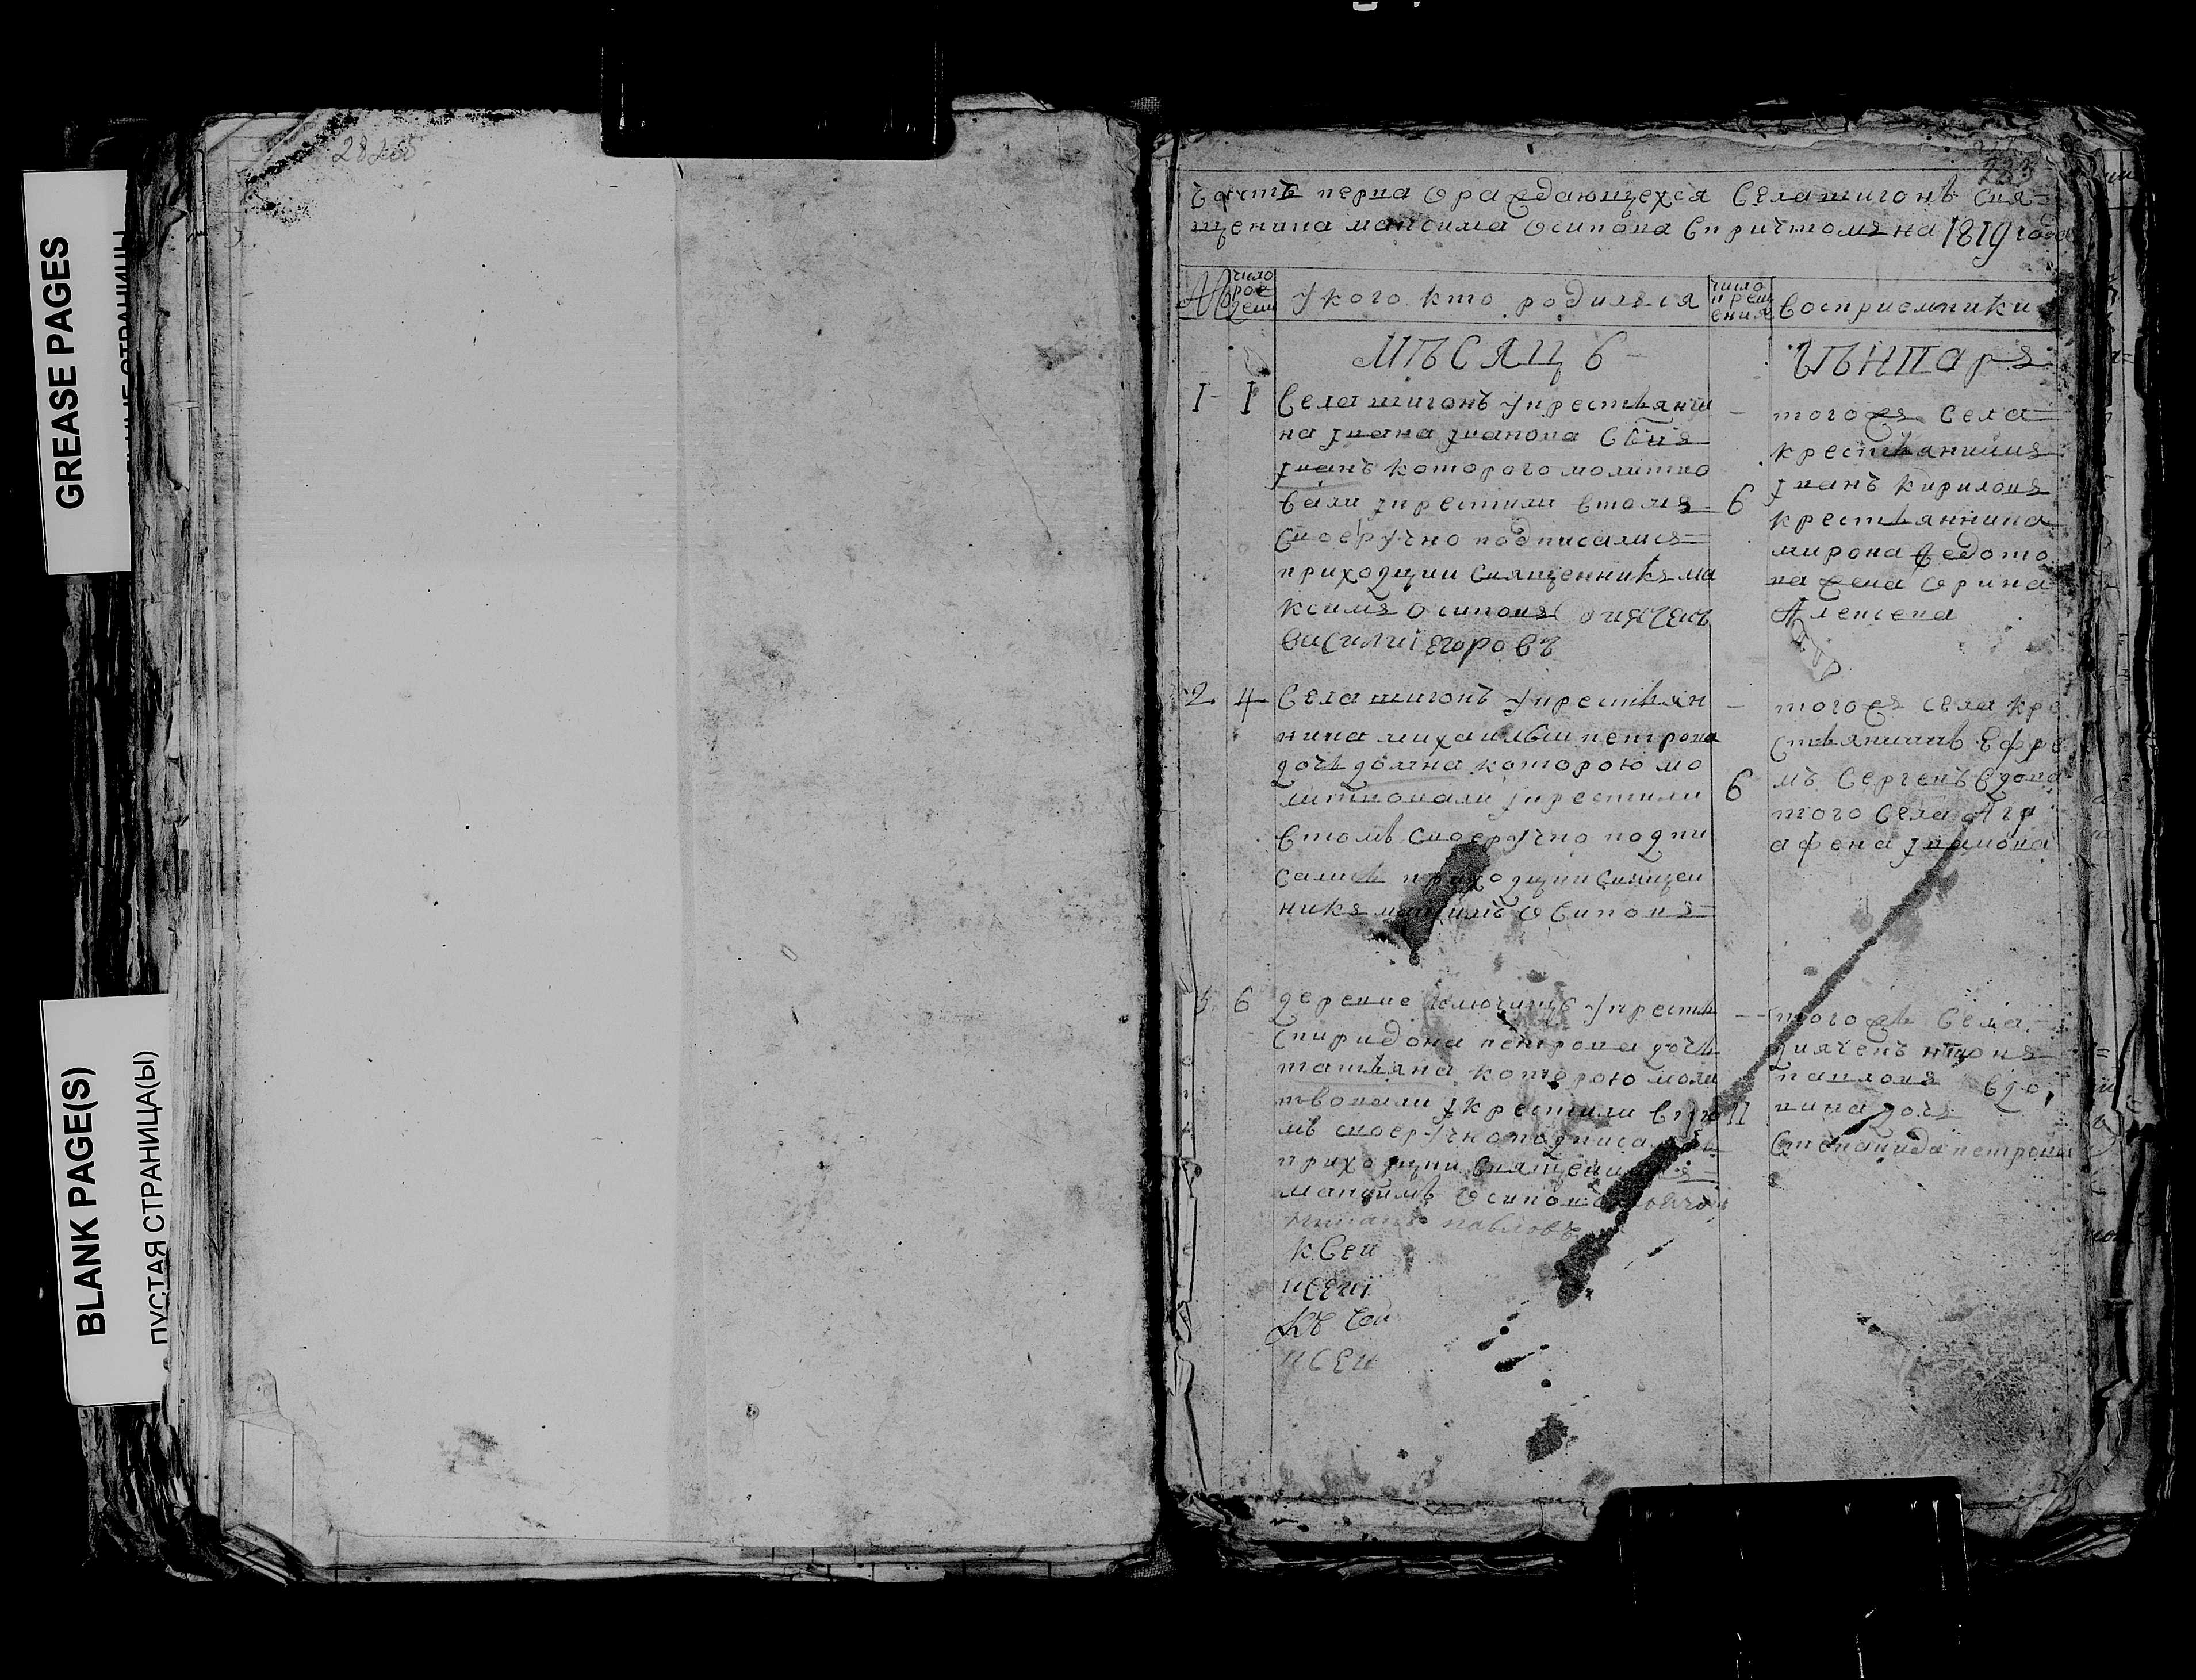 GREASE PAGES
BLANK PAGE(S)
ПУСТАЯ СТРАНИЦА(Ы)
223
Часть перва о раждающехся села шигонъ свя=
щенника максима осипова спричтомъ на 1819 года
№
число рож дени
у кого кто родился
число крещ ения
восприемники
МѢСЯЦЬ
ГЕНВАРЬ
1 - 1 Села шигонъ у крестьяни
на Ивана Иванова сынъ
Иванъ которого молитво
вали и крестили втомъ 6
своеручно подписались=
приходцкии священникъ ма
ксимъ осиповъ дьячекъ
василиі егоровъ
- того жъ села=
крестьянинъ
Иванъ кириловъ
крестьянина
мирона федото
ва жена орина
Алексева
2. 4 - Села шигонъ у крестьян
нина михаилы петрова
дочь домна которою мо
литвовали и крестили 6
втомъ своеручно подпи
сались приходцкии священ
никъ максимъ осиповъ=
- того жъ села кре
стьянинъ Ефре
мъ сергеевъ вдова
того села Агр
афена
3 6 деревне ключищь у кресть
спиридона петрова дочь
татьяна которою моли
твовали и крестили в то 11
мъ своеручно подписались
приходцкии священникъ
максимъ осиповъ
павловъ
- - того жъ села
дьячекъ
павловъ вдо,
вина дочь
степанида петрова
к сеи
к сеиі
къ сеи
к сеи